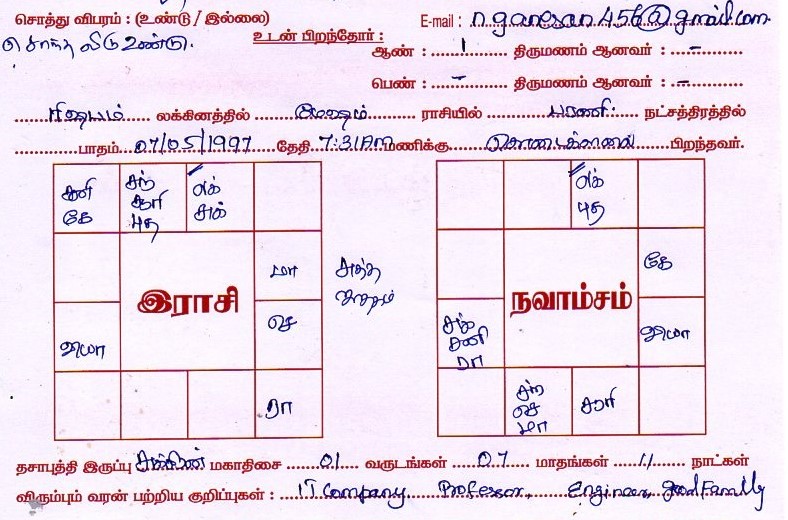 சொத்து விபரம் : (உண்டு / இல்லை) E-mail : n.ganesan.456@gmail.com
சொந்த வீடு உண்டு. உடன் பிறந்தோர் :
ஆண் : 1 திருமணம் ஆனவர் : -
பெண் : - திருமணம் ஆனவர் : -
ரிஷபம் லக்கினத்தில் மேஷம் ராசியில் பரணி நட்சத்திரத்தில்
பாதம் 07/05/1997 தேதி 7:31 AM மணிக்கு கொடைக்கானல் பிறந்தவர்.
சனி கே
சந் சூரி புத
லக் சுக்
லக் புத
மா
கே
இராசி
நவாம்சம்
குமா
செ
சுக் சனி ரா
குமா
ரா
சந் செ மா
சூரி
தசாபுத்தி இருப்பு சுக்கிரன் மகாதிசை 01 வருடங்கள் 07 மாதங்கள் 11 நாட்கள்
விரும்பும் வரன் பற்றிய குறிப்புகள் : IT Company Professor, Engineer, good Family